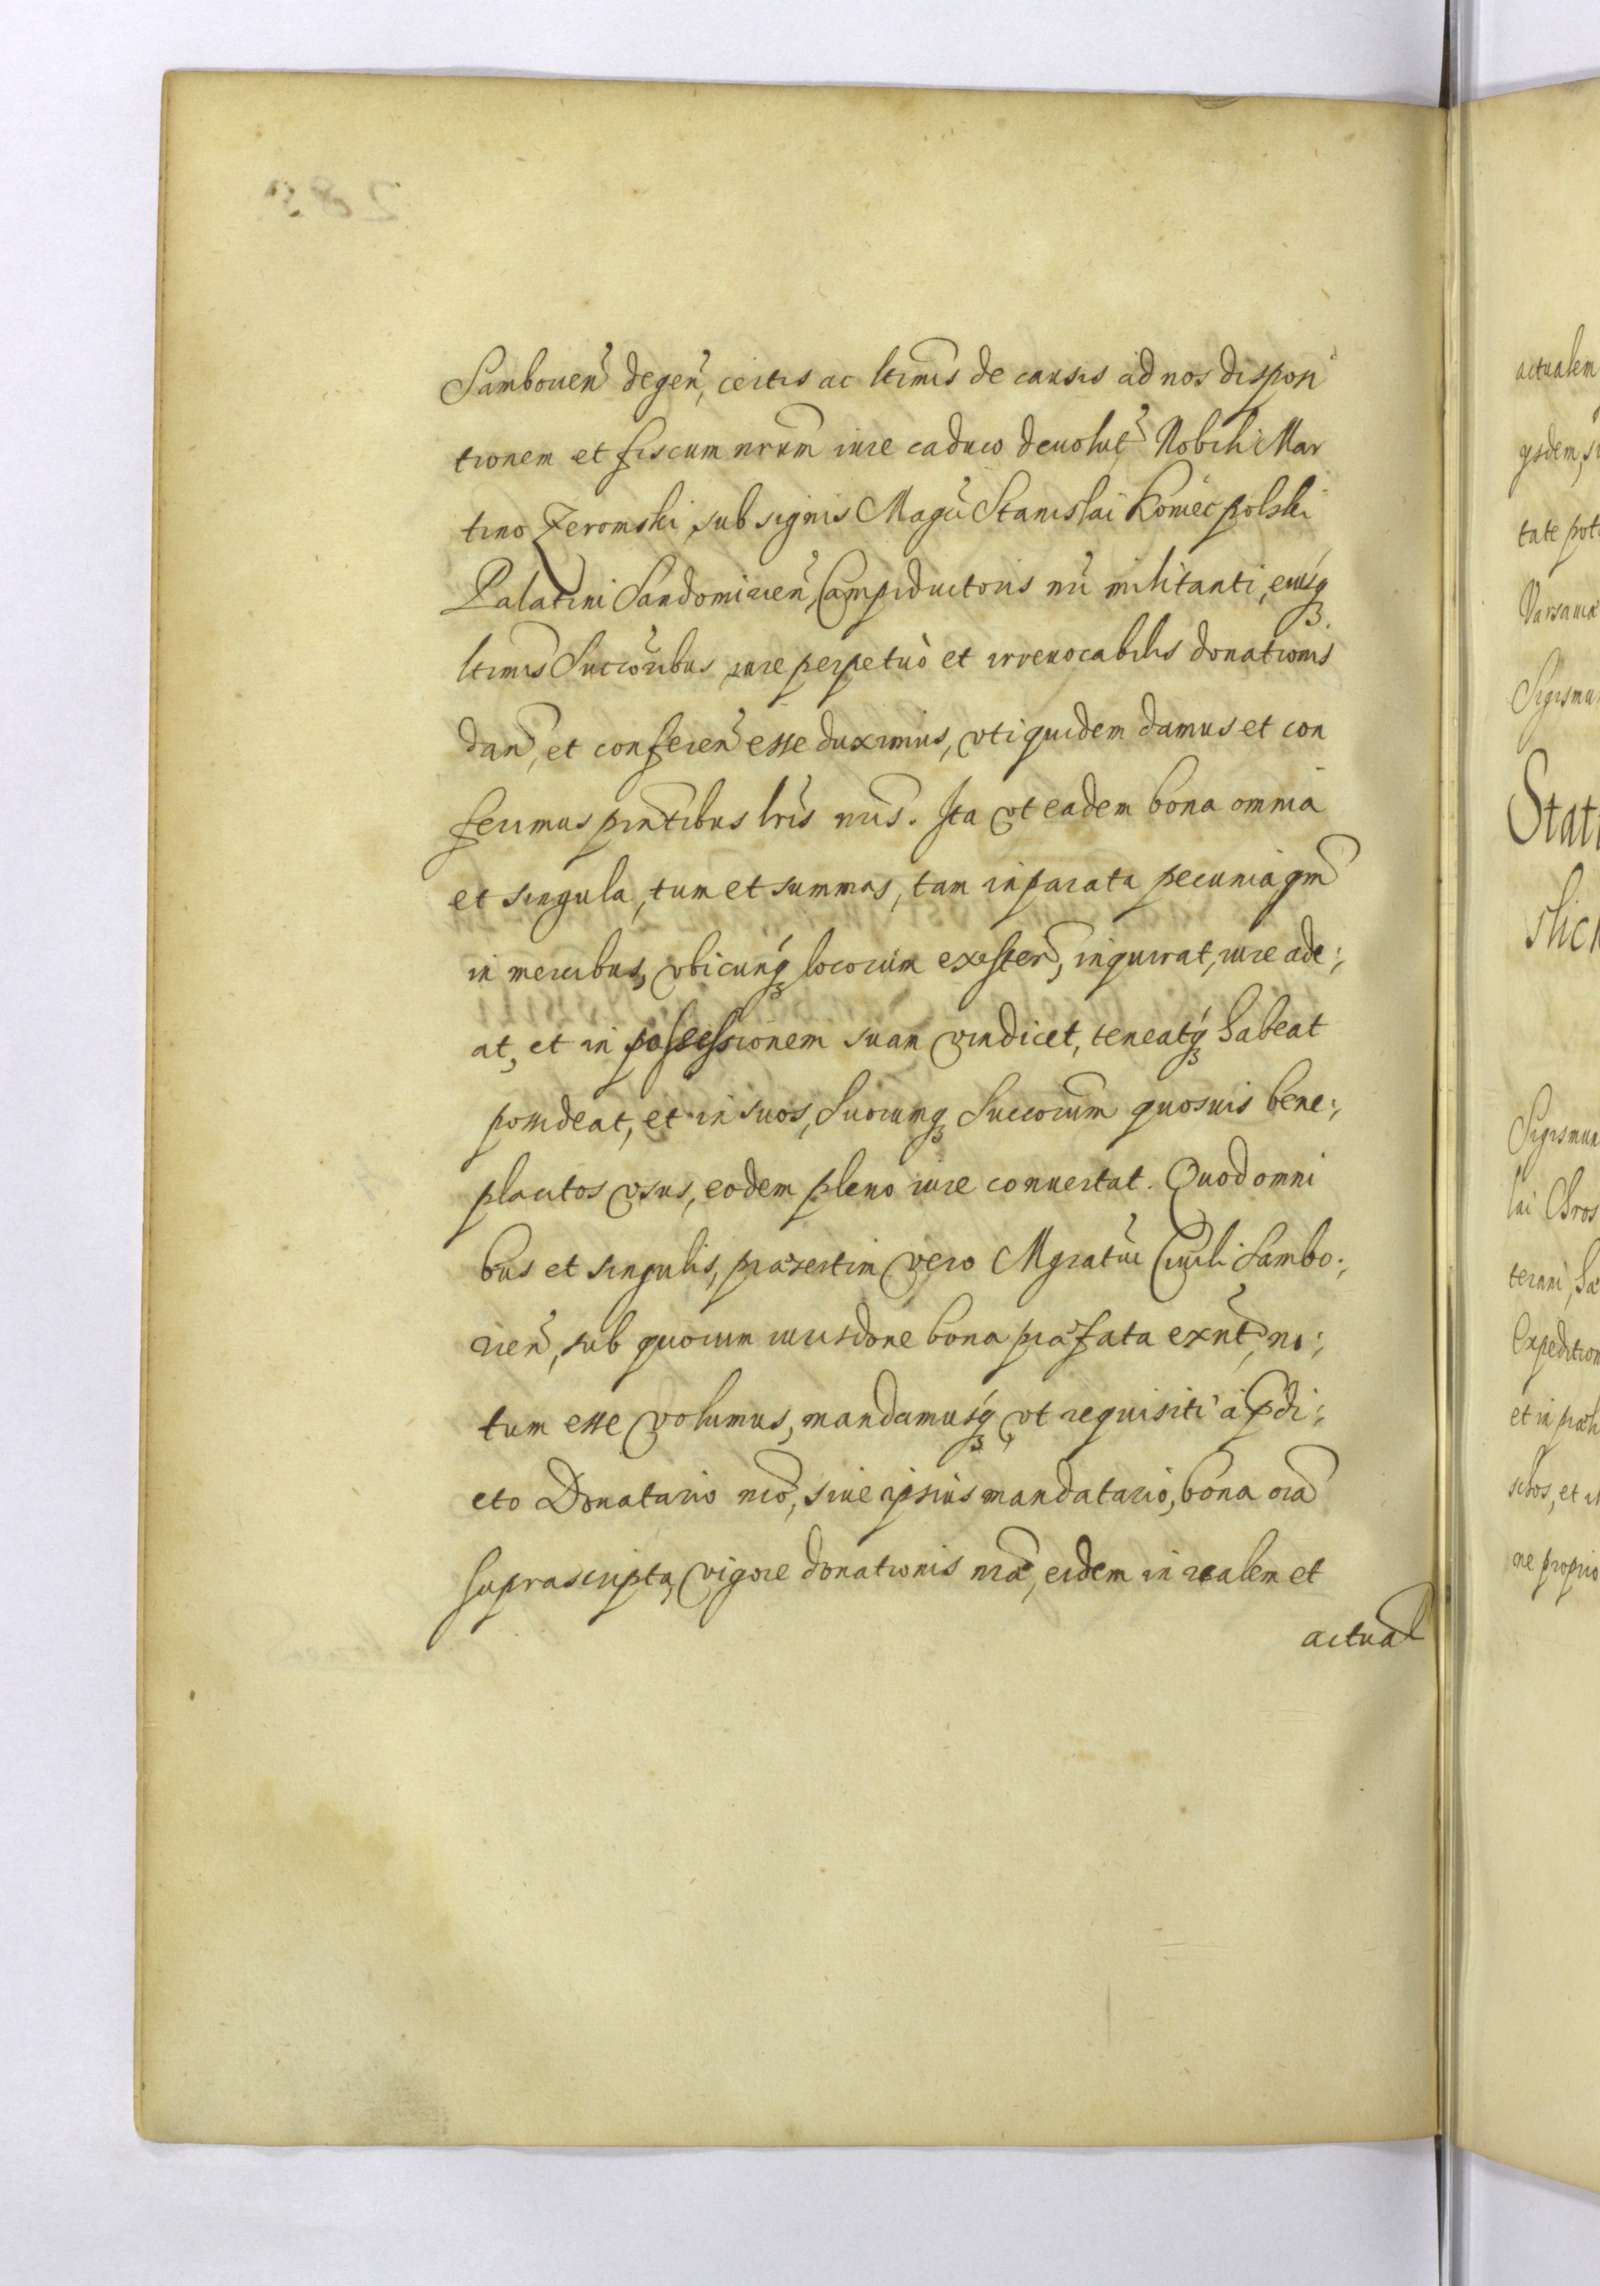 Samborien̄ degen̄, certis ac ltimis de causis ad nos disposi
tionem et fiscum nrum iure caduco devolut̄ Nobili Mar
tino Zeromski, sub signis Magci Stanislai Koniecpolski
Palatini Sandomirien̄, Campiductoris nri militanti, eiusq₃
ltimis Succoribus iure perpetuò et irrevocabilis donationis
dan̄, et conferen̄ esse duximus, uti quidem damus et con
ferimus pntibus lris nris. Ita ut eadem bona omnia
et singula, tum et summas, tam in parata pecunia, qm
in mercibus, ubicunq₃ locorum existen̄, inquirat, iure ade:,
at, et in possessionem suan vindicet, teneatq₃ habeat
possideat, et in suos, Suorumq₃ Succorum quosuis bene:,
placitos usus, eodem pleno iure convertat. Quod omni
bus et singulis, præsertim vero Mgratui Ciuili Sambo:,
rien̄, sub quorum iurisdone bona præfata exnt, no:,
tum esse volumus, mandamusq₃ ut requisiti à pdi:,
cto Donatario nro, siue ipsius mandatario, bona oia
suprascripta, vigore donationis nræ, eidem in realem et
actual
283
actualem
qsdem, si
tate pot
Varsauiæ
Sigismu
Stat
slick
Sigismun
lai Chros
terum, Sa
Expedition
et in præ
scbos, et
ne proprio